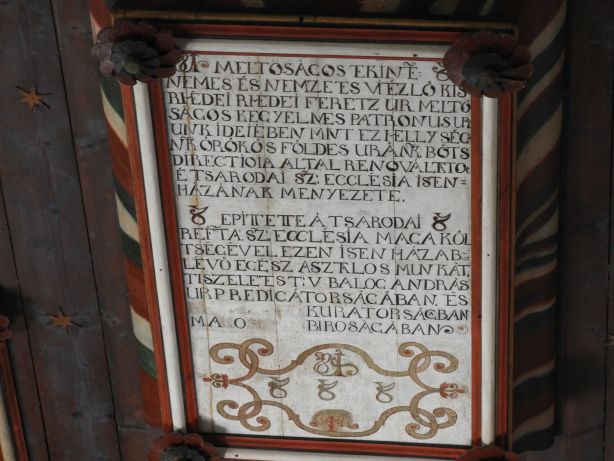 MELTOSÁGOS TEKINTE:
NEMES ÉS NEMZETES VÉZLÓ KIS
RHÉDEI RHEDEI FERETZ UR MELTO
SÁGOS KEGYELMES PATRONUS UR
UNK IDEIÉBEN MINT EZ HELLY SÉG
NK ÖRÖKÖS FÖLDES URANK BÖTS
DIRECTIOIA ALTAL RENOVÁLKTO
É TSARODAI SZ: ECCLÉSIA ISEN-
HÁZÁNAK MENYEZETE.
EPITETTE Á TSARODAI
REFTA. SZ. ECCLÉSIA MAGA KÖL
TSÉGÉVEL EZEN ISEN HÁZAB-
LÉVÖ EGÉSZ ASZTLOS MUNKÁT,
TISZELETES T: V BALOG ANDRÁS
UR PREDICÁTORSÁGÁBAN, ES
KURATORSÁGBAN
MA O BIROSÁGÁBAN